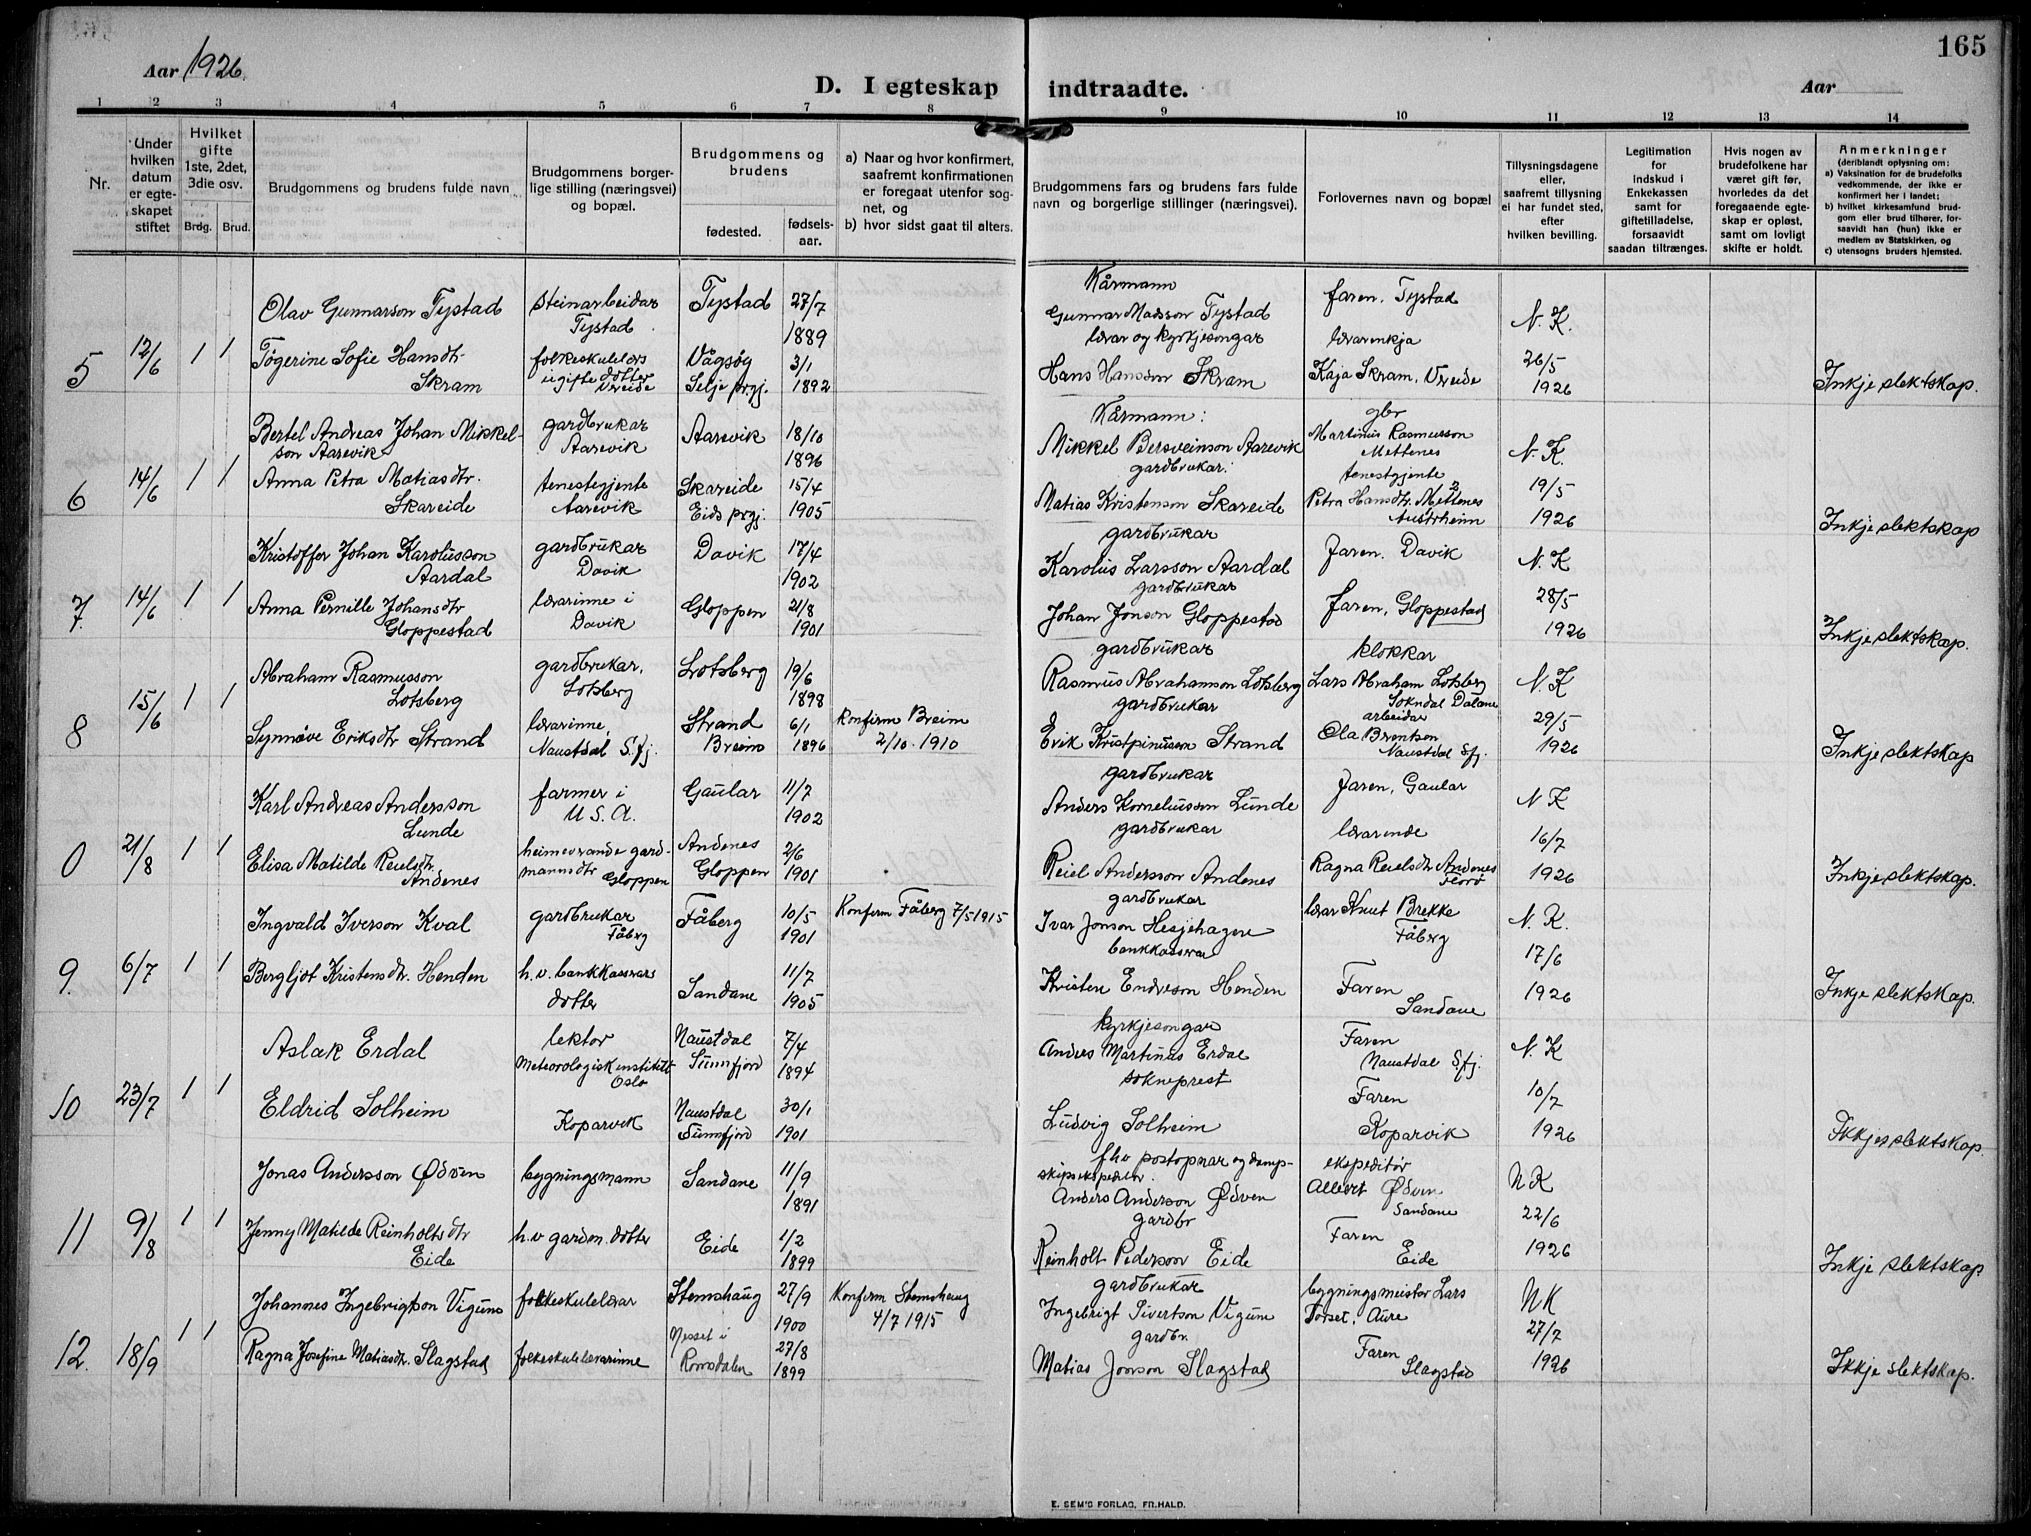 165
Aar 1926.
D. I egteskap indtraadte.
Aar
1 2 3 4 5 6 7 8 9 10 11 12 13 14
Nr.
Under hvilken datum er egteskapet stiftet
Hvilket gifte 1ste, 2det, 3die osv.
Brdg. Brud.
Brudgommens og brudens fulde navn
Brudgommens borgerlige stilling (næringsvei) og bopæl.
Brudgommens og brudens
fødested.
fødselsaar.
a) Naar og hvor konfirmert, saafremt konfirmationen er foregaat utenfor sognet, og
b) hvor sidst gaat til alters.
Brudgommens fars og brudens fars fulde navn og borgerlige stillinger (næringsvei).
Forlovernes navn og bopæl
Tillysningsdagene eller, saafremt tillysning ei har fundet sted, efter hvilken bevilling.
Legitimation for indskud i Enkekassen samt for giftetilladelse, forsaavidt saadan tiltrænges.
Hvis nogen av brudefolkene har været gift før, hvorledes da det foregaaende egteskap er opløst, samt om lovligt skifte er holdt.
Anmerkninger
(deriblandt oplysning om:
a) Vaksination for de brudefolks vedkommende, der ikke er konfirmert her i landet;
b) hvilket kirkesamfund brudgom eller brud tilhører, forsaavidt han (hun) ikke er medlem av Statskirken, og
c) utensogns bruders hjemsted.
5 12/6 1 1
Olav Gunnarson Tystad
steinarbeidar Tystad
Tystad 27/7 1889
Kårmann
Gunnar Madsson Tystad
faren, Tystad
N. K.
Tøgerine Sofie Hansdtr. Skram
folkeskulelærs ugifte dotter Vreide
Vågsøy Selje prgj. 3/1 1892
lærar og kyrkjesongar
Hans Hansson Skram
lærarenkja
Kaja Skram, Vreide
26/5 1926
Inkje slektskap.
6 14/6 1 1
Bertel Andreas Johan Mikkelson Aarevik
gardbrukar Aarevik
Aarevik 18/10 1896
Kårmann:
Mikkel Bersveinson Aarevik
gbr Martinus Rasmusson Mettenes
N. K.
Anna Petra Matiasdtr. Skareide
tenestegjente Aarevik
Skareide Eids prgj. 15/4 1905
gardbrukar:
Matias Kristenson Skareide
tenestgjente
Petra Hansdtr. Mettenes Austrheim
19/5 1926
Inkje slektskap
7. 14/6 1 1
Kristoffer Johan Karolusson Aardal
gardbrukar Davik
Davik 17/4 1902
gardbrukar
Karolus Larsson Aardal
Faren. Davik
N. K
Anna Pernille Johansdtr Gloppestad
lærarinne i Davik
Gloppen 21/8 1901
gardbrukar
Johan Jonson Gloppestad
faren, Gloppestad
28/5 1926
Inkje slektskap.
8 15/6 1 1
Abraham Rasmusson Lotsberg
gardbrukar, Lotsberg
Lotsberg 19/6 1898
gardbrukar
Rasmus Abrahamson Lotsberg
klokkar
Lars Abraham Lotsberg Sokndal Dalane
N. K
Synnøve Eriksdtr Strand
lærarinne, Naustdal S.fj.
Strand Breim 6/1 1896
Konfirm Breim 2/10. 1910
gardbrukar
Erik Kristpinusson Strand
arbeidar
Ola Berentsen Naustdal Sfj.
29/5 1926
Inkje slektskap
0 21/8 1 1
Karl Andreas Andersson Lunde
farmer i U. S. A.
Gaular 11/7 1902
gardbrukar
Anders Korneliusson Lunde
Faren, Gaular
N K
Elisa Matilde Reielsdtr. Andenes
heimeverande gardmannsdtr Gloppen
Andenes Gloppen 2/6 1901
gardbrukar
Reiel Andersson Andenes
lærarinde
Ragna Reielsdtr Andenes Florø
16/7 1926
Inkje slektskap.
9. 6/7 1 1
Ingvald Iverson Kval
gardbrukar Fåberg
Fåberg 10/5 1901
Konfirm Fåberg 7/5 1915
gardbrukar
Ivar Jonson Hesjehagen
lærar Knut Brekke Fåberg
N. K.
Bergljot Kristensdtr. Henden
h. v. bankkasserars dotter
Sandane 11/7 1905
bankkasserar
Kristen Endreson Henden
Faren Sandane
17/6 1926
Inkje slektskap.
10 23/7 1 1
Aslak Erdal
lektor Meteorologisk institutt Oslo
Naustdal Sunnfjord 7/4 1894
kyrkjesongar
Anders Martinus Erdal
Faren Naustdal Sfj.
N. K
Eldrid Solheim
Koparvik
Naustdal Sunnfjord 30/1 1901
sokneprest
Ludvig Solheim
Faren Koparvik
10/7 1926
Ikkje slektskap.
11 9/8 1 1
Jonas Andersson Ødven
bygningsmann
Sandane 11/9 1891
fhv postopnar og dampskipsekspeditør.
Anders Anderson Ødven
ekspeditør
Albert Ødven Sandane
N K
Jenny Matilde Reinholtsdtr Eide
h. v gardm. dotter
Eide 1/2 1899
gardbr
Reinholt Pederson Eide
Faren Eide
22/6 1926
Inkje slektskap
12. 18/9 1 1
Johannes Ingebrigtson Vigum
folkeskulelærar
Stemshaug 27/9 1900
Konfirm Stemshaug 4/7 1915
gardbrukar
Ingebrigt Sivertson Vigum
bygningsmeister Lars Torset, Aure
N K
Ragna Josefine Matiasdtr. Slagstad
folkeskulelærarinne
Nesset i Romsdalen 27/8 1899
gardbr.
Matias Jonson Slagstad
Faren Slagstad
27/7 1926
Ikkje slektskap.
E. SEM'S FORLAG, FR.HALD.